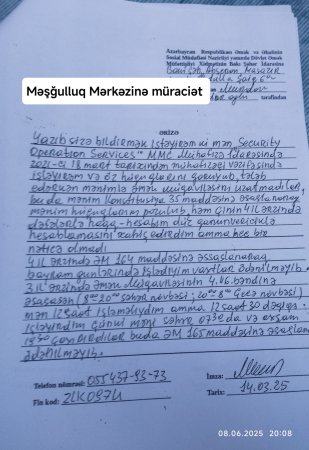 Azərbaycan Respublikası Əmək və Əhalinin
Sosial Müdafiəsi Nazirliyi yanında Dövlət Əmək
Müfəttişliyi Xidmətinin Bakı Şəhər İdarəsinə
Məşğulluq Mərkəzinə müraciət
tərəfindən
ƏRİZƏ
Yazıb sizə bildirmək istəyirəm ki mən, Security
Operation Services" MMC Mühafizə İdarəsində
2021-ci 18 mart tarixindən mühafizəçi vəzifəsində
işləyirəm və öz hüquqlarını qoruyub, tələb
edərkən mənimlə əmək müqaviləsin uzatmadılar,
buda mənim Konstitusiya 35 maddəsinə əsaslanaraq
mənim hüquqlarım pozulub, həm çinin 4 il ərzində
dəfələrlə haqq-hesabın düz qanunvericiliklə
hesablamasını xahiş edirdim amma heç bir
nəticə olmadı
4 il ərzində ƏM 164 maddəsinə əssaslanaraq
bayram günlərində işlədiyim vaxtlar ödənilməyib.
3 il ərzində əmək müqavləsinin 4.46 bəndinə
əsasəən (8⁰⁰ 20⁰⁰ səhər növbəsi; 20⁰⁰ 8⁰⁰ gecə növbəsi)
mən 12 saat işləməliydim amma 12 saat 30 dəqiqə.
işləyirdim çünki məni səhər 07 30 da və axşam
19 30 çağırırdılar buda ƏM 165 maddəsinə əsaslan
ödənilməyib.
Telefon nömrəsi: 055 437-93-73
İmza:
Fin kod:
Tarix: 14.03.25
08.06.2025 20:08